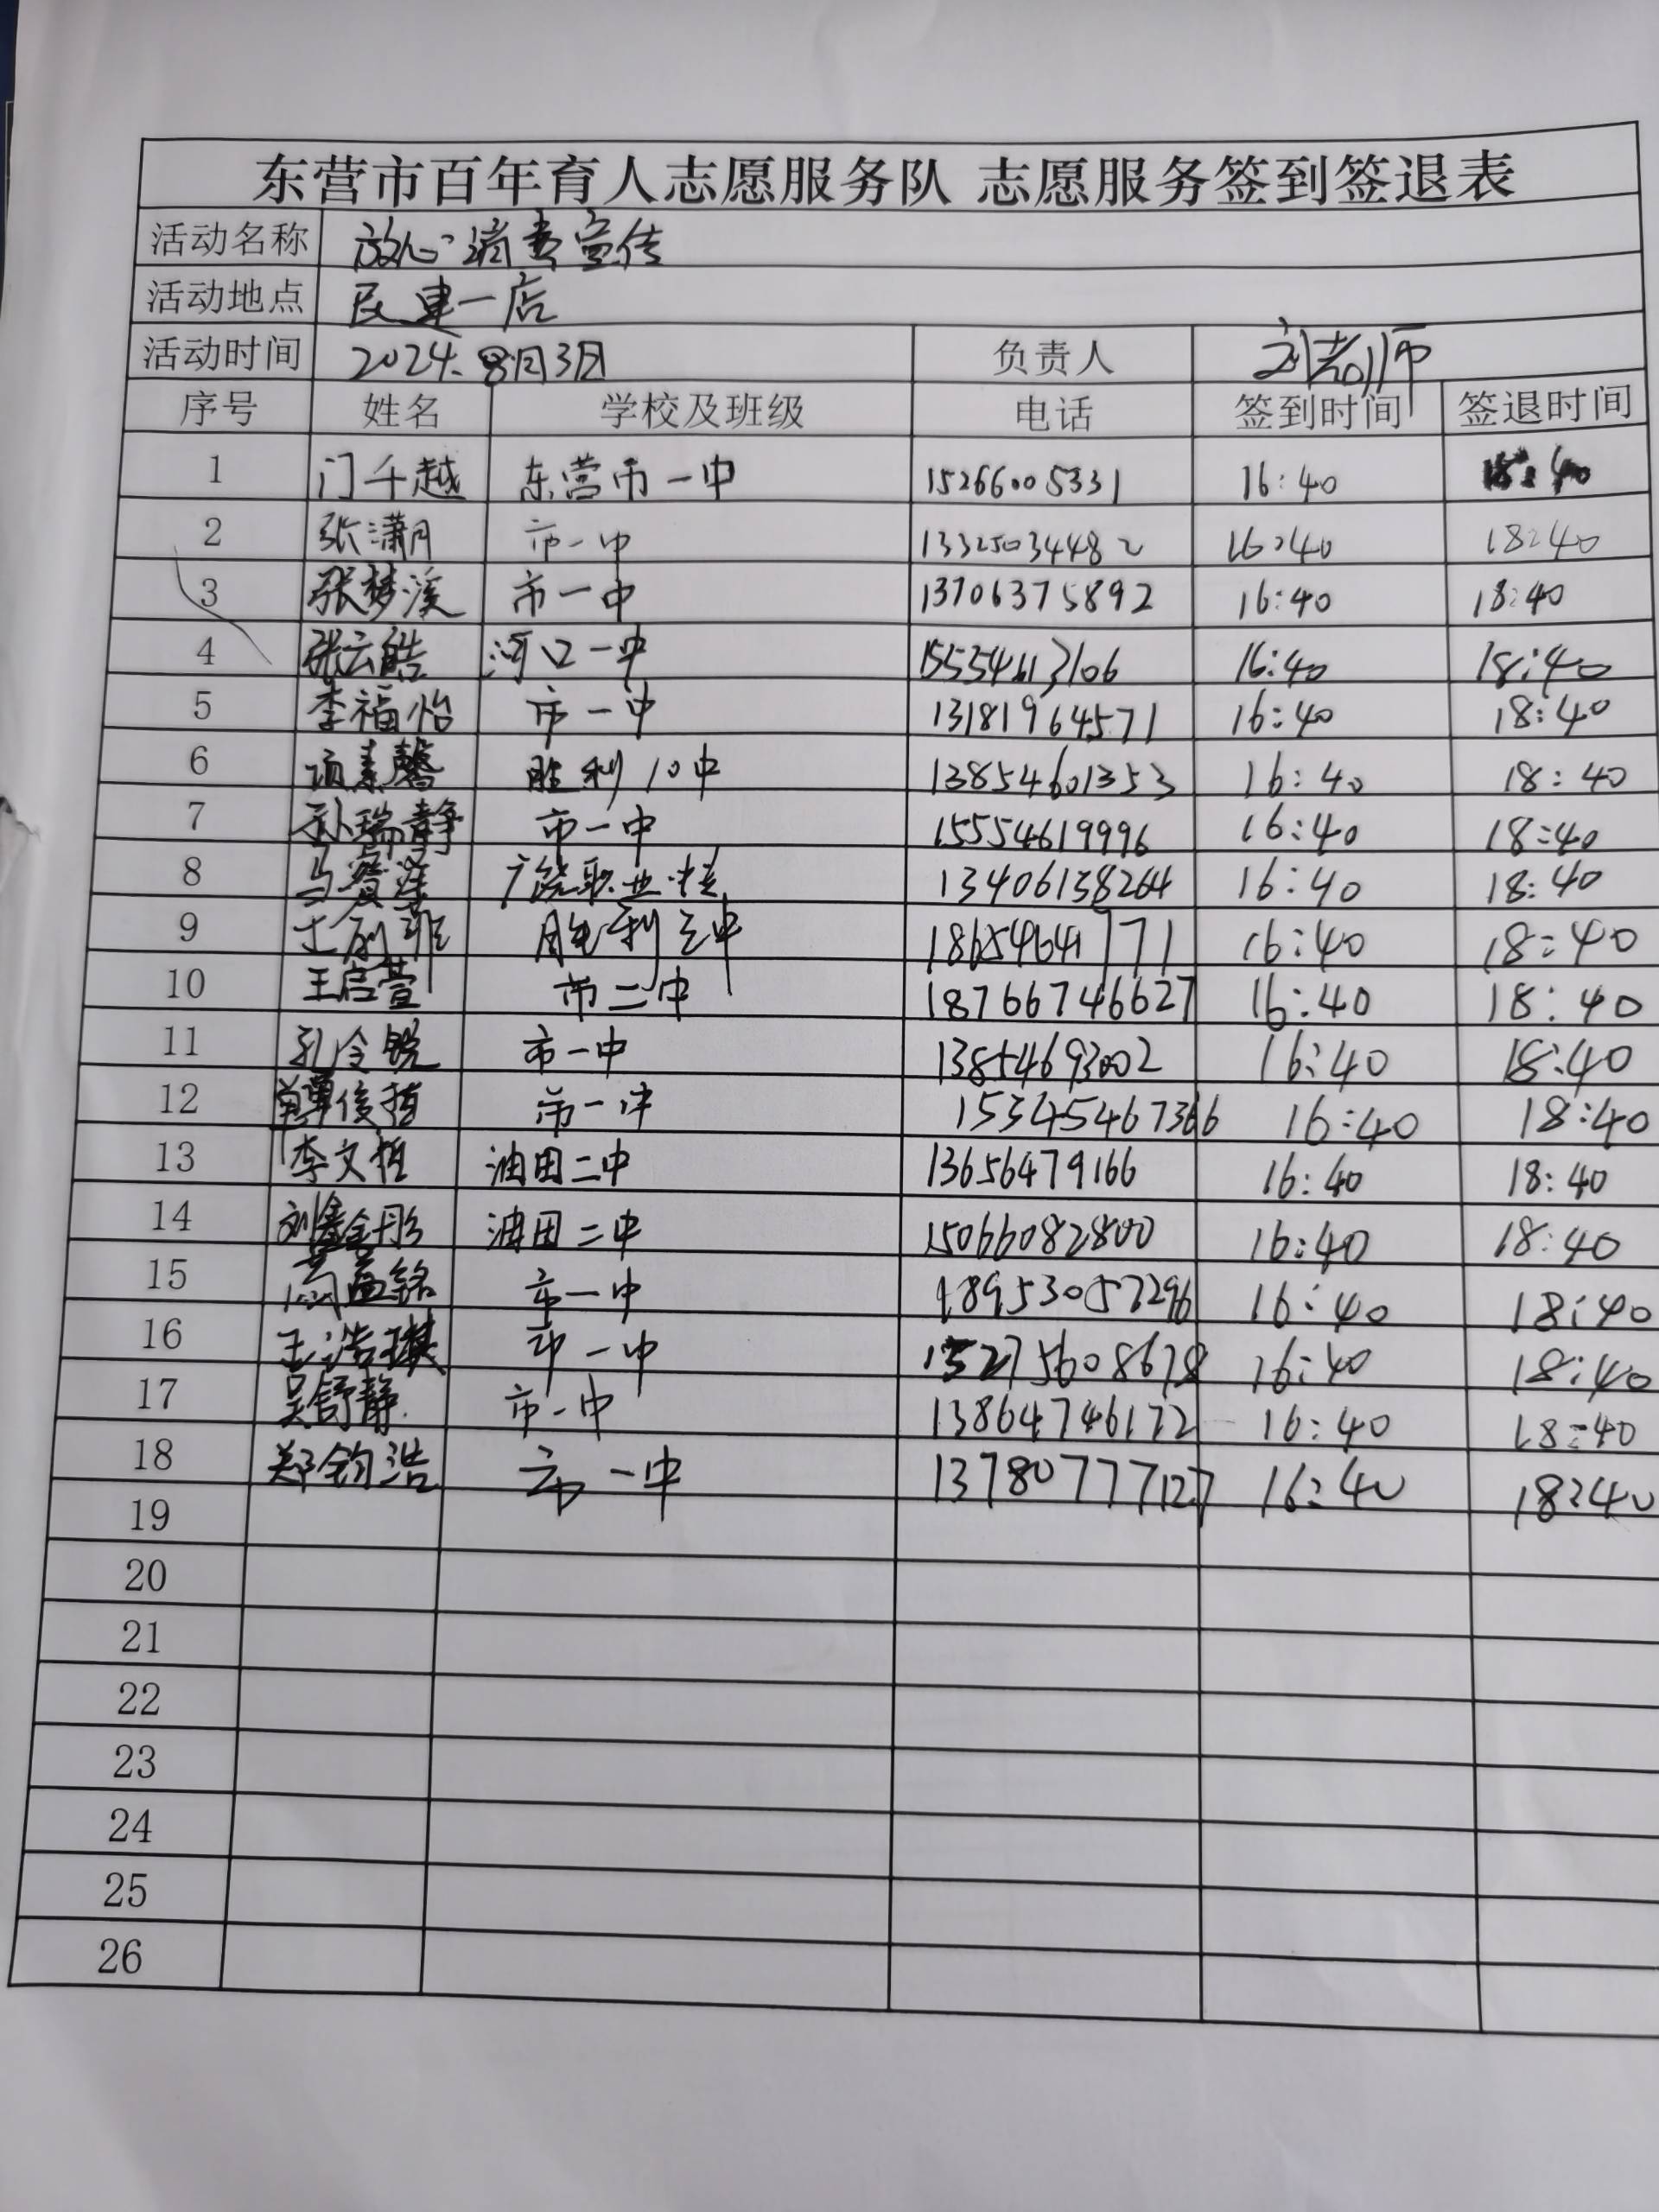 东营市百年育人志愿服务队 志愿服务签到签退表
活动名称 放心消费宣传
活动地点 民建一店
活动时间 2024.8月3日 负责人 刘老师
序号 姓名 学校及班级 电话 签到时间 签退时间
1 门千越 东营市一中 15266005331 16:40 18:40
2 张潇月 市一中 13325034482 16:40 18:40
3 张梦溪 市一中 13706375892 16:40 18:40
4 张云皓 河口一中 15554613106 16:40 18:40
5 李福怡 市一中 13181964571 16:40 18:40
6 项素馨 胜利10中 13854601353 16:40 18:40
7 孙瑞静 市一中 15554619996 16:40 18:40
8 马 广饶职业中专 13406138264 16:40 18:40
9 胜利三中 18654641771 16:40 18:40
10 王启萱 市二中 18766746627 16:40 18:40
11 孔令锐 市一中 13854693002 16:40 18:40
12 单俊哲 市一中 15345467366 16:40 18:40
13 李文哲 油田二中 13656479166 16:40 18:40
14 刘鑫彤 油田二中 15066082800 16:40 18:40
15 市一中 18953057296 16:40 18:40
16 王浩琪 市一中 15275608678 16:40 18:40
17 吴舒静 市一中 13864746172 16:40 18:40
18 郑钧浩 市一中 13780777127 16:40 18:40
19
20
21
22
23
24
25
26